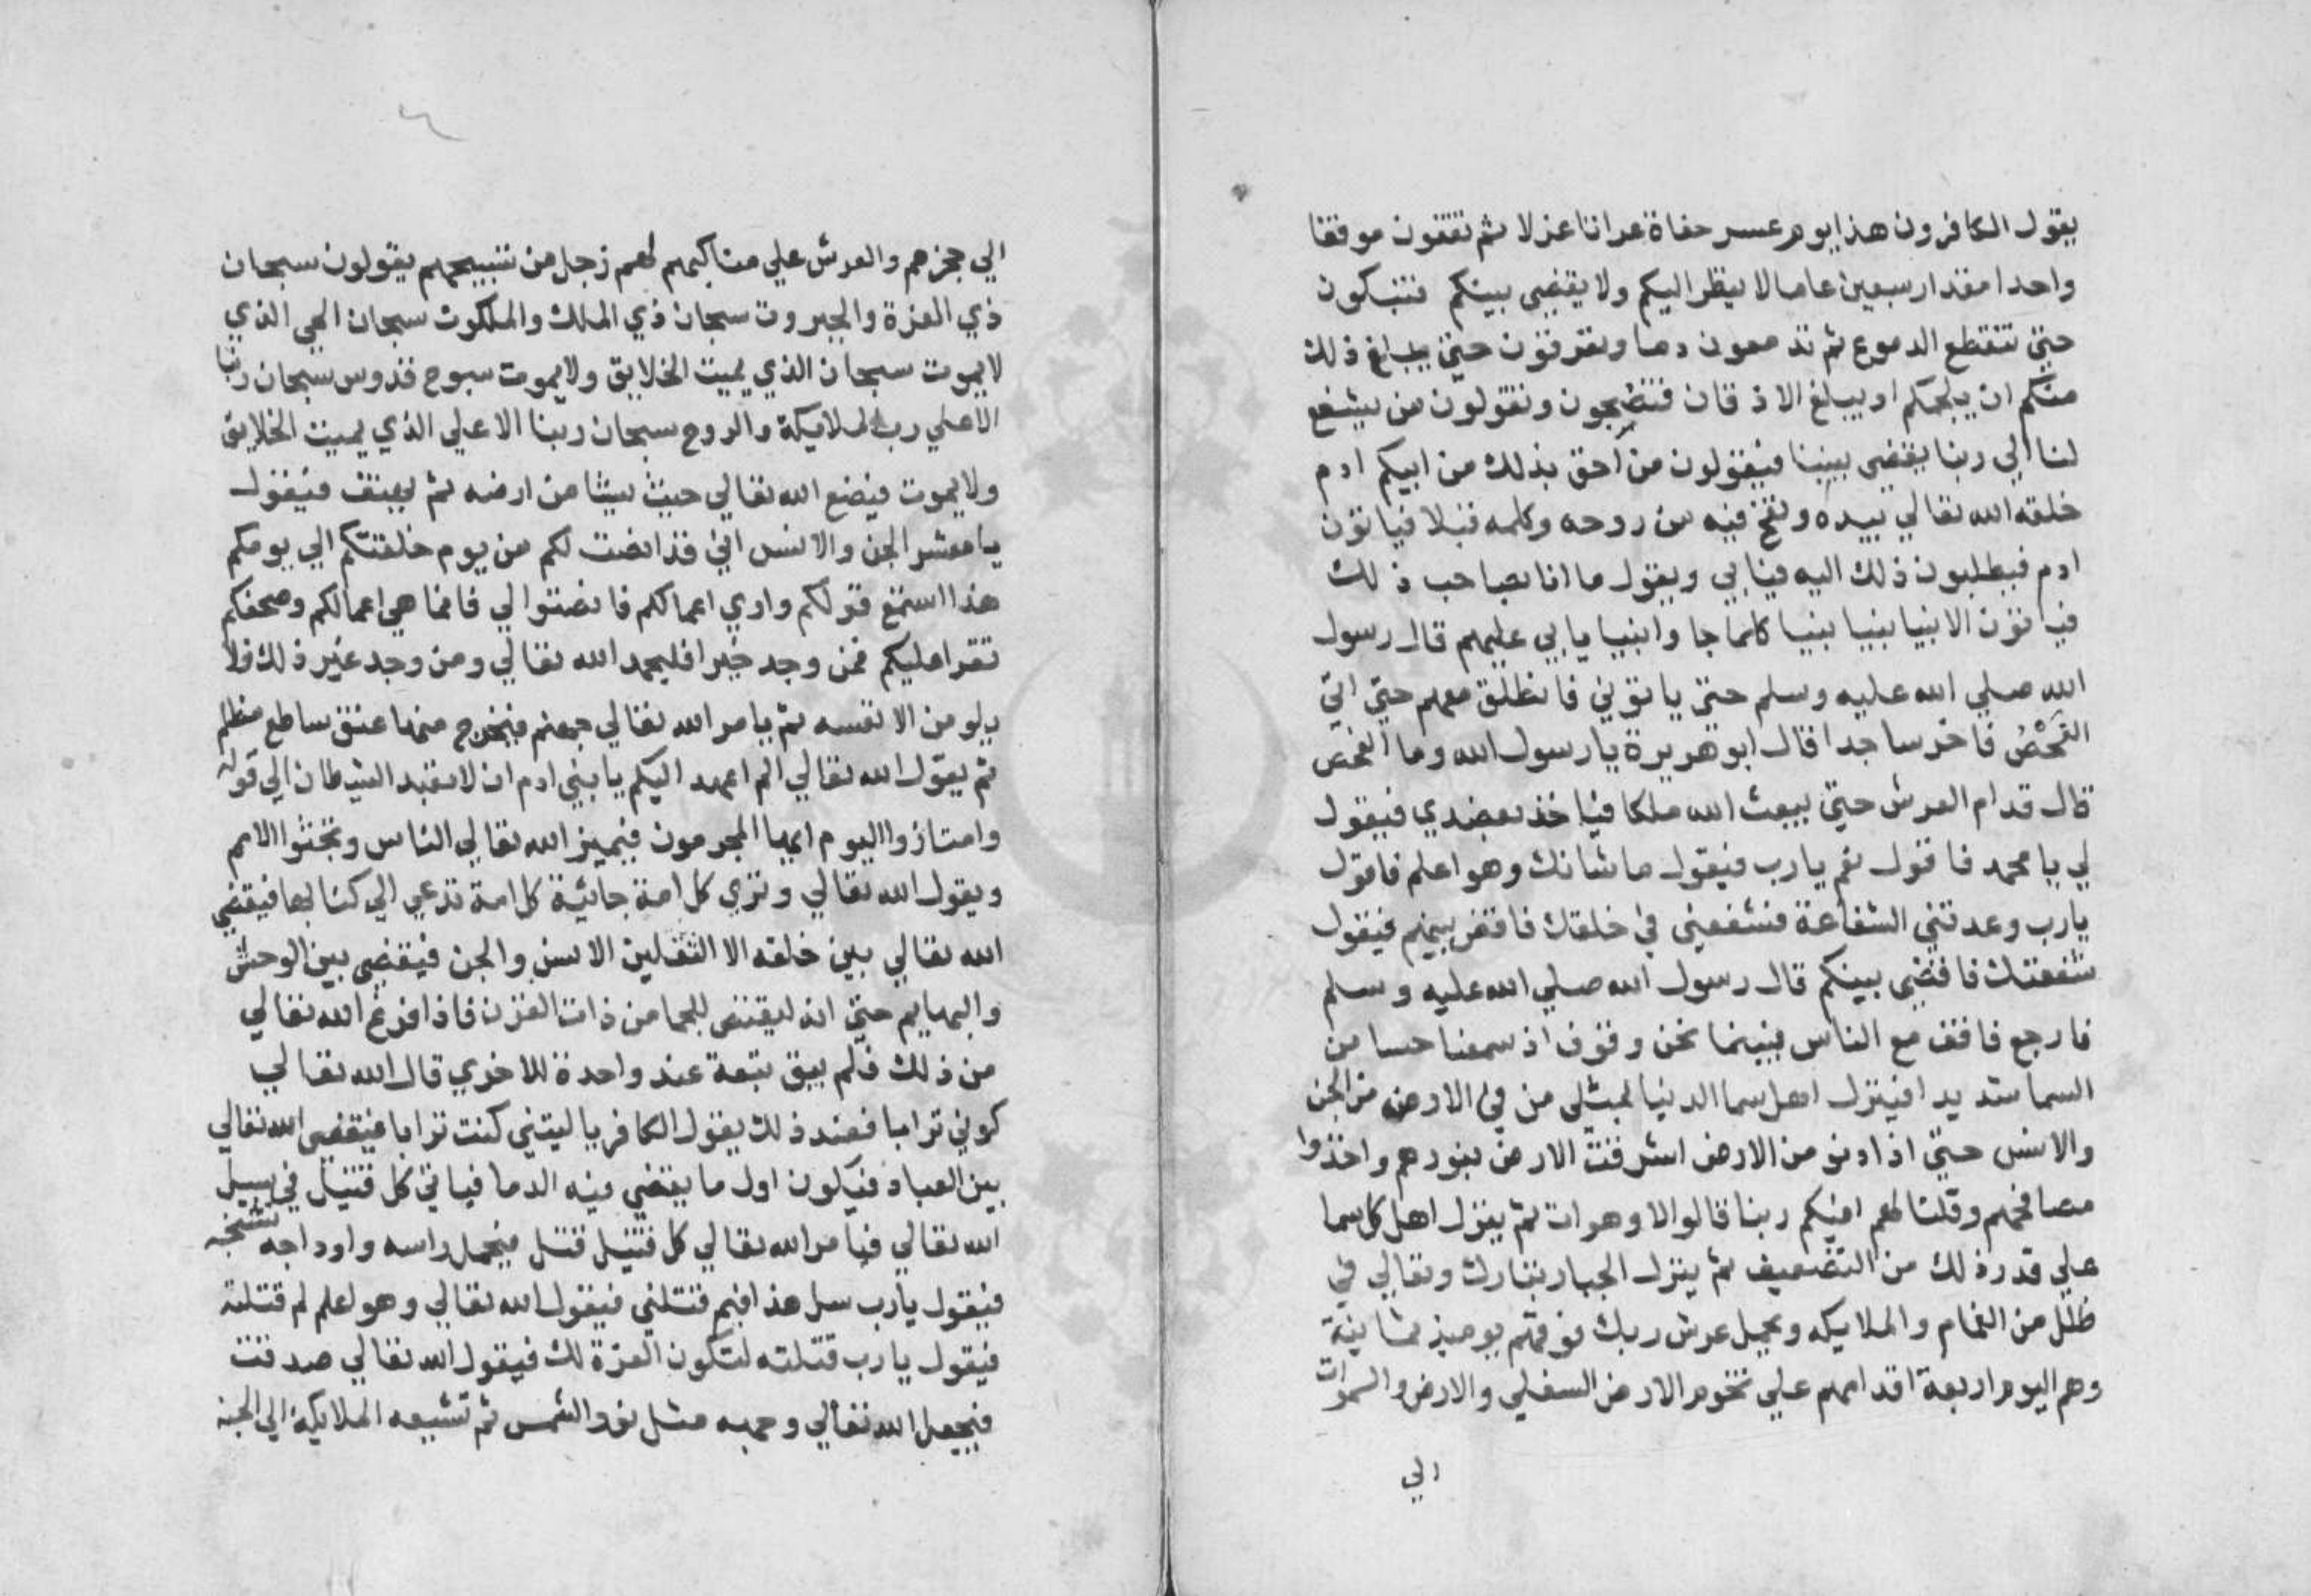 يقول الكافرون هذا يوم عسر حفاة عراتا عزلا ثم تقفون موقفا
واحدا مقدار سبعين عاما لا ينظر اليكم ولا يقضي بينكم فتبكون
حتي تنقطع الدموع ثم تدمعون دما وتعرقون حتي يبلغ ذلك
منكم ان يلجمكم او يبلغ الاذقان فتضجون وتقولون من يشفع
لنا الي ربنا يقضي بيننا فيقولون من احق بذلك من ابيكم ادم
خلقه الله تعالي بيده ونفخ فيه من روحه وكلمه قبلا فياتون
ادم فيطلبون ذلك اليه فيابي ويقول ما انا بصاحب ذلك
فياتون الانبيا بنيا بنيا كلما جا وا بنيا يابي عليهم قال رسول
الله صلي الله عليه وسلم حتي ياتوني فانطلق معهم حتي اتي
الفحص فاخر ساجدا قال ابو هريرة يا رسول الله وما الفحص
قال قدام العرش حتي يبعث الله ملكا فياخذ بعضدي فيقول
لي يا محمد فاقول نعم يا رب فيقول ما شانك وهو اعلم فاقول
يارب وعدتني الشفاعة فشفعني في خلقك فاقض بينهم فيقول
شفعتك فاقضي بينكم قال رسول الله صلي الله عليه وسلم
فارجع فاقف مع الناس فبينما نحن وقوف اذ سمعنا حسا من
السما شديدا فينزل اهل سما الدنيا بمثلي من في الارض من الجن
والانس حتي اذا دنو من الارض اشرقت الارض بنورهم واخذوا
مصافحهم وقلنا لهم افيكم ربنا قالوا لا وهو ات ثم ينزل اهل كل سما
علي قدر ذلك من التضعيف ثم ينزل الجبار تبارك وتعالي في
ظلل من الغمام والملايكه ويحمل عرش ربك فوقهم يوميذ ثمانية
وهم اليوم اربعة اقدامهم علي تخوم الارض السفلي والارض والسموات
الي
٤
الي حجزهم والعرش علي مناكبهم لهم زجل من تسبيحهم يقولون سبحان
ذي العزة والجبروت سبحان ذي الملك والملكوت سبحان الحي الذي
لا يموت سبحان الذي يميت الخلايق ولا يموت سبوح قدوس سبحان ربنا
الاعلي رب الملايكة والروح سبحان ربنا الاعلي الذي يميت الخلايق
ولا يموت فيضع الله تعالي حيث يشا من ارضه ثم يهتف فيقول
يا معشر الجن والانس اني قد انصت لكم من يوم خلقتكم الي يومكم
هذا استمع قولكم واري اعمالكم فانصتوا لي فانما هي اعمالكم وصحفكم
تقرا عليكم فمن وجد خيرا فليحمد الله تعالي ومن وجد غير ذلك فلا
يلومن الا نفسه ثم يامر الله تعالي جهنم فيخرج منها عنق ساطع مظلم
ثم يقول الله تعالي الم اعهد اليكم يا بني ادم ان لا تعبد الشيطان الي قوله
وامتازوا اليوم ايها المجرمون فيميز الله تعالي الناس وتجثوا الامم
ويقول الله تعالي وتري كل امة جاثية كل امة تدعي الي كتابها فيقضي
الله تعالي بين خلقه الا الثقلين الانس والجن فيقضي بين الوحش
والبهايم حتي انه ليقتص للجما من ذات القرن فاذا فرغ الله تعالي
من ذلك فلم يبق تبعة عند واحدة للاخري قال الله تعالي
كوني ترابا فعند ذلك يقول الكافر يا ليتني كنت ترابا فيقضي الله تعالي
بين العباد فيكون اول ما يقضي فيه الدما فياتي كل قتيل في سبيل
الله تعالي فيامر الله تعالي كل قتيل قتل فيحمل راسه واوداجه تشخبه
فيقول يارب سل هذا فيم قتلني فيقول الله تعالي وهو اعلم لم قتلته
فيقول يا رب قتلته لتكون العزة لك فيقول الله تعالي صدقت
فيجعل الله تعالي وجهه مثل نور الشمس ثم تشيعه الملايكة الي الجنة